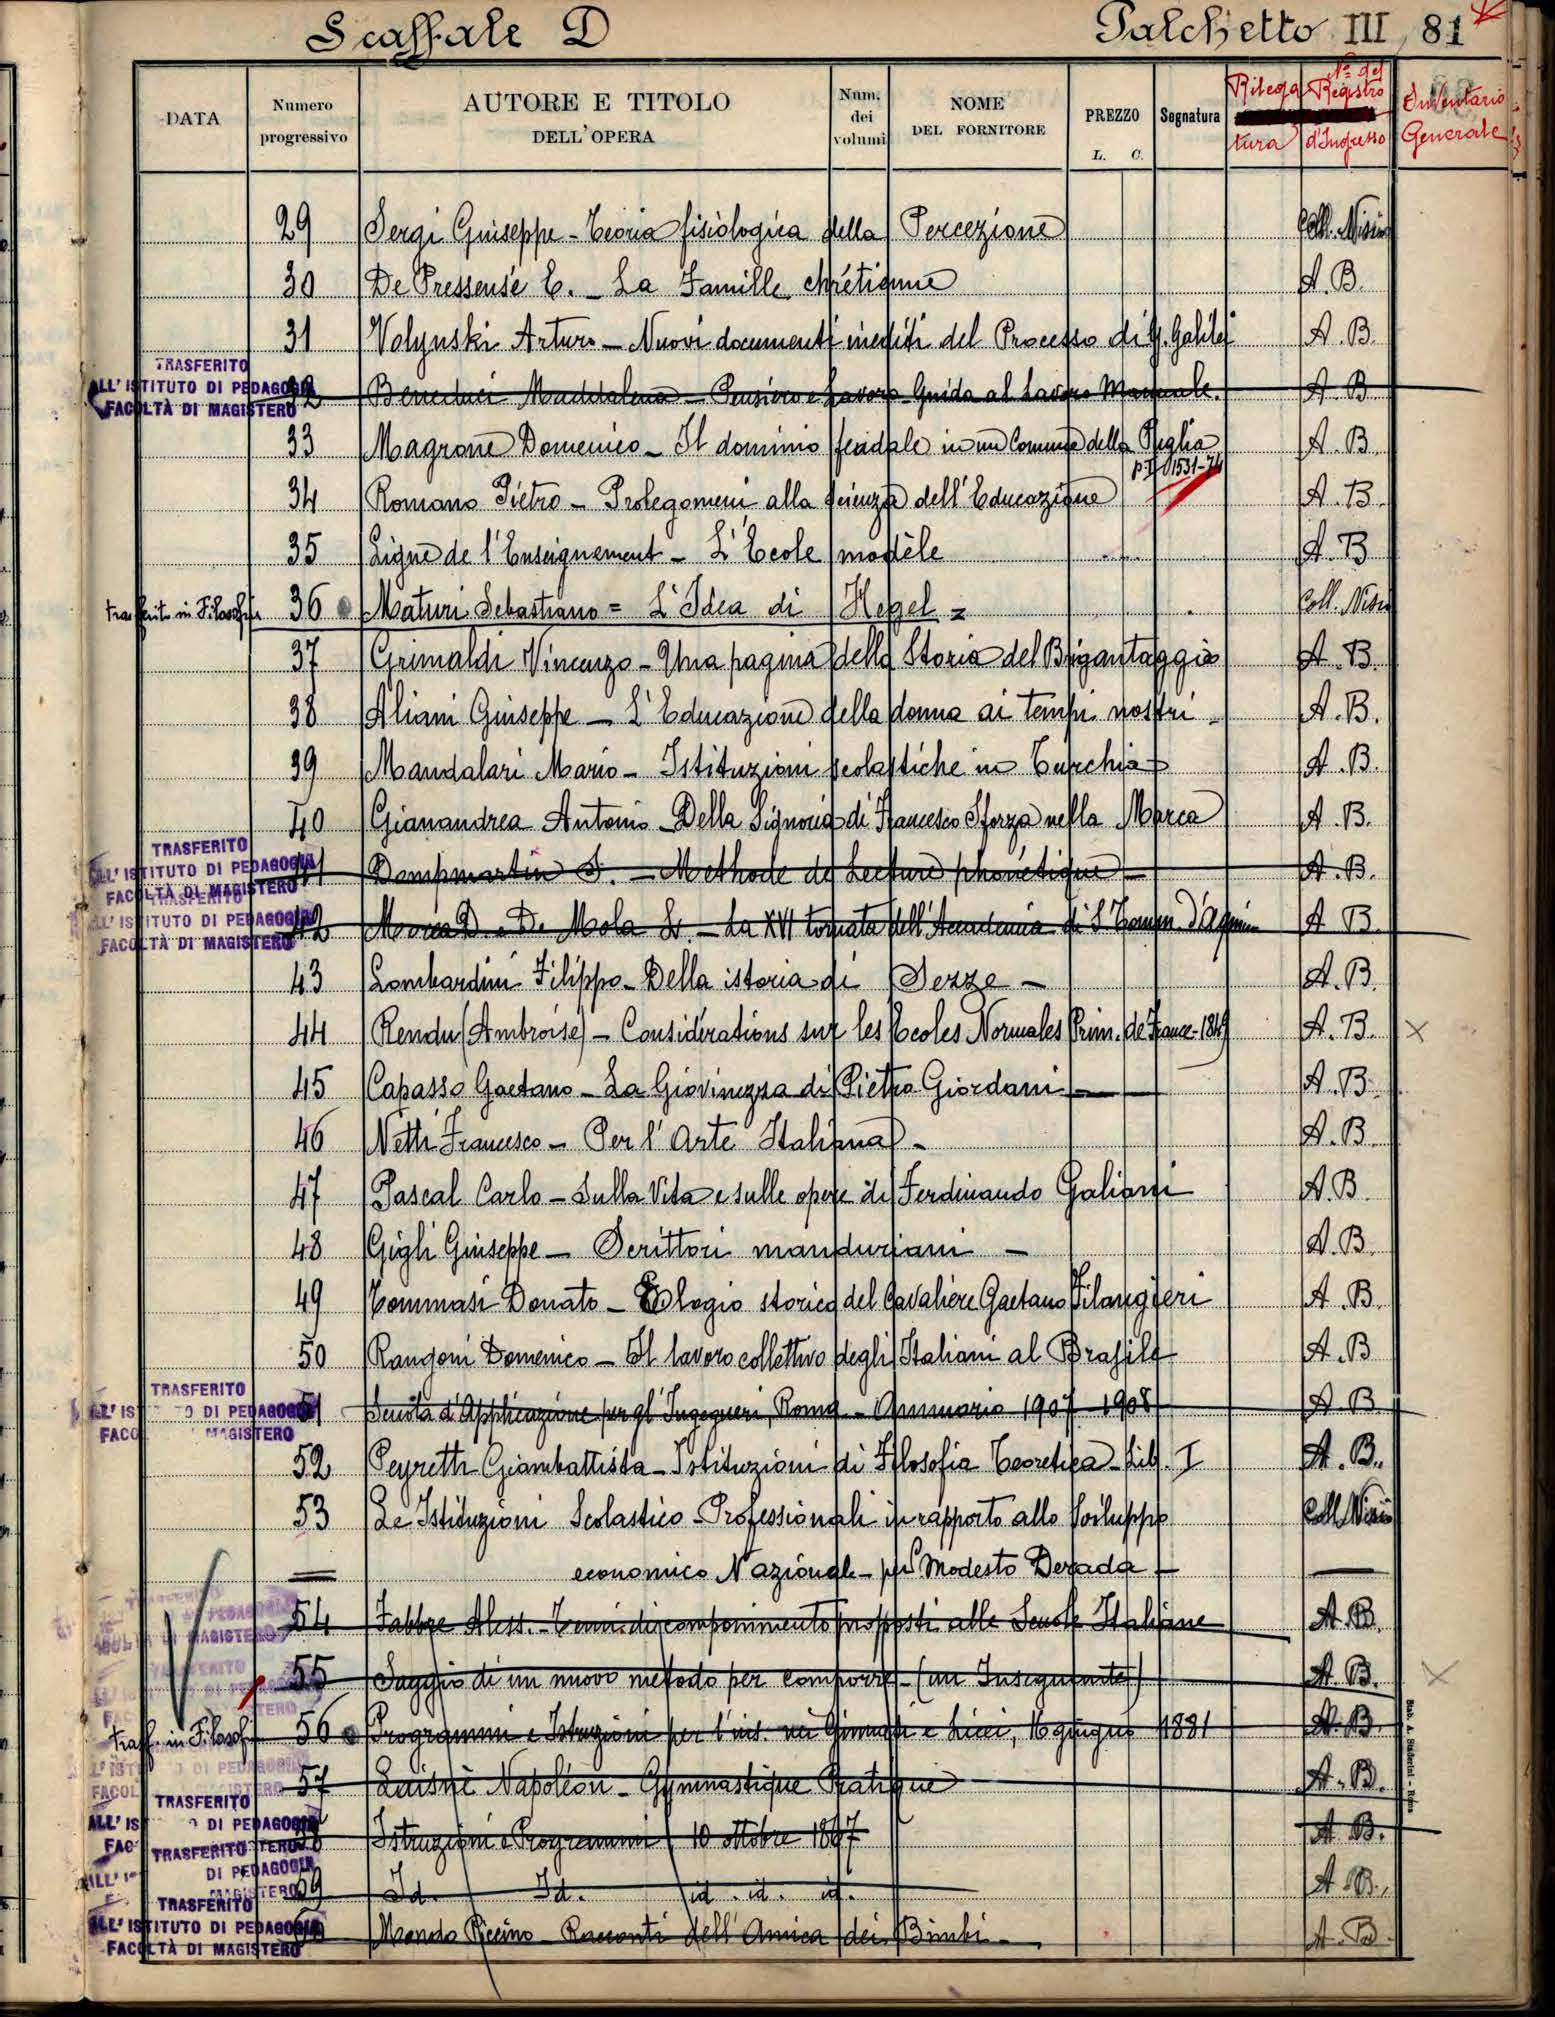 Scaffale D Palchetto III 81
DATA Numero progressivo AUTORE E TITOLO DELL'OPERA Num. dei volumi NOME DEL FORNITORE PREZZO L. C. Segnatura Rilegatura N° del Registro d'Ingresso Inventario Generale
29 Sergi Giuseppe - Teoria fisiologica della Percezione Coll. Nisio
30 De Pressensé E. - La Famille chrétienne A. B.
31 Volynski Arturo - Nuovi documenti inediti del Processo di G. Galilei A. B.
TRASFERITO
ALL'ISTITUTO DI PEDAGOGIA
FACOLTÀ DI MAGISTERO
32 Maddalena - Pensiero e Lavoro - Guida al Lavoro Manuale. A. B
33 Magrone Domenico - Il dominio feudale in un Comune della Puglia A. B.
p. I 1531-74
34 Romano Pietro - Prolegomeni alla scienza dell'Educazione A. B.
35 Ligue de l'Enseignement - L'Ecole modèle A. B
trasferito in Filosofia 36 Maturi Sebastiano = L'Idea di Hegel = Coll. Nisio
37 Grimaldi Vincenzo - Una pagina della Storia del Brigantaggio A. B.
38 Aliani Giuseppe - L'Educazione della donna ai tempi nostri - A. B.
39 Mandalari Mario - Istituzioni scolastiche in Turchia A. B.
40 Gianandrea Antonio - Della Signoria di Francesco Sforza nella Marca A. B.
TRASFERITO
ALL'ISTITUTO DI PEDAGOGIA
FACOLTÀ DI MAGISTERO
41 Dampmartin - Methode de Lecture phonétique - A. B.
TRASFERITO
ALL'ISTITUTO DI PEDAGOGIA
FACOLTÀ DI MAGISTERO
42 Mola - La XVI tornata dell'Accademia di S. Tomm. d'Aquino A. B.
43 Lombardini Filippo - Della istoria di Sezze - A. B.
44 Rendu (Ambroise) - Considérations sur les Ecoles Normales Prim. de France - 1849 A. B. ×
45 Capasso Gaetano - La Giovinezza di Pietro Giordani - A. B.
46 Netti Francesco - Per l'Arte Italiana - A. B.
47 Pascal Carlo - Sulla Vita e sulle opere di Ferdinando Galiani A. B.
48 Gigli Giuseppe - Scrittori manduriani - A. B.
49 Tommasi Donato - Elogio storico del Cavaliere Gaetano Filangieri A. B.
50 Rangoni Domenico - Il lavoro collettivo degli Italiani al Brasile A. B
TRASFERITO
ALL'IS O DI PEDAGOGIA
FACO MAGISTERO
51 Scuola d'Applicazione per gl'Ingegneri, Roma - Annuario 1907 1908 A. B
52 Peyretti Giambattista - Istituzioni di Filosofia Teoretica - Lib. I A. B.
53 Le Istituzioni Scolastico-Professionali in rapporto allo Sviluppo Coll. Nisio
economico Nazionale - per Modesto Derada -
54 Fabbre Aless. - Temi di componimento proposti alle Scuole Italiane A. B.
55 Saggio di un nuovo metodo per comporre - (un Insegnante) A. B. ×
trasf. in Filosof. 56 Programmi e Istruzioni per l'ins. nei Ginnasi e Licei, 16 giugno 1881 A. B.
57 Laisné Napoléon - Gymnastique Pratique A. B.
TRASFERITO
ALL'IS O DI PEDAGOGIA
58 Istruzioni e Programmi 10 ottobre 1867 A. B.
TRASFERITO
DI PEDAGOGIA
59 Id. Id. id. id. id. A. B.
TRASFERITO
ALL'ISTITUTO DI PEDAGOGIA
FACOLTÀ DI MAGISTERO
60 Mondo Piccino - Racconti dell'Amica dei Bimbi - A. B.
Stab. A. Staderini - Roma